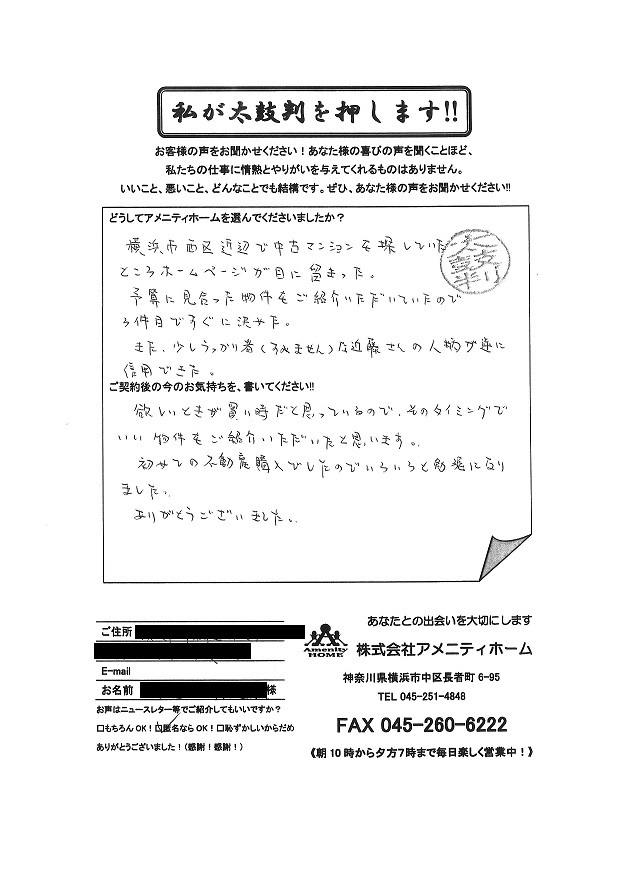 私が太鼓判を押します!!
お客様の声をお聞かせください！あなた様の喜びの声を聞くことほど、
私たちの仕事に情熱とやりがいを与えてくれるものはありません。
いいこと、悪いこと、どんなことでも結構です。ぜひ、あなた様の声をお聞かせください!!
どうしてアメニティホームを選んでくださいましたか？
横浜市西区近辺で中古マンションを探していた
ところホームページが目に留まった。
太鼓判
予算に見合った物件をご紹介いただいていたので
3件目ですぐに決めた。
また、少しうっかり者(すみません)な近藤さんの人柄が逆に
信用できた。
ご契約後の今のお気持ちを、書いてください!!
欲しいときが買い時だと思っているので、そのタイミングで
いい物件をご紹介いただいたと思います。
初めての不動産購入でしたのでいろいろと勉強になり
ました。
ありがとうございました。
ご住所
E-mail
お名前 様
お声はニュースレター等でご紹介してもいいですか？
□もちろんOK！□匿名ならOK！□恥ずかしいからだめ
ありがとうございました！（感謝！感謝！）
あなたとの出会いを大切にします
Amenity
HOME
株式会社アメニティホーム
神奈川県横浜市中区長者町 6-95
TEL 045-251-4848
FAX 045-260-6222
《朝10時から夕方7時まで毎日楽しく営業中！》